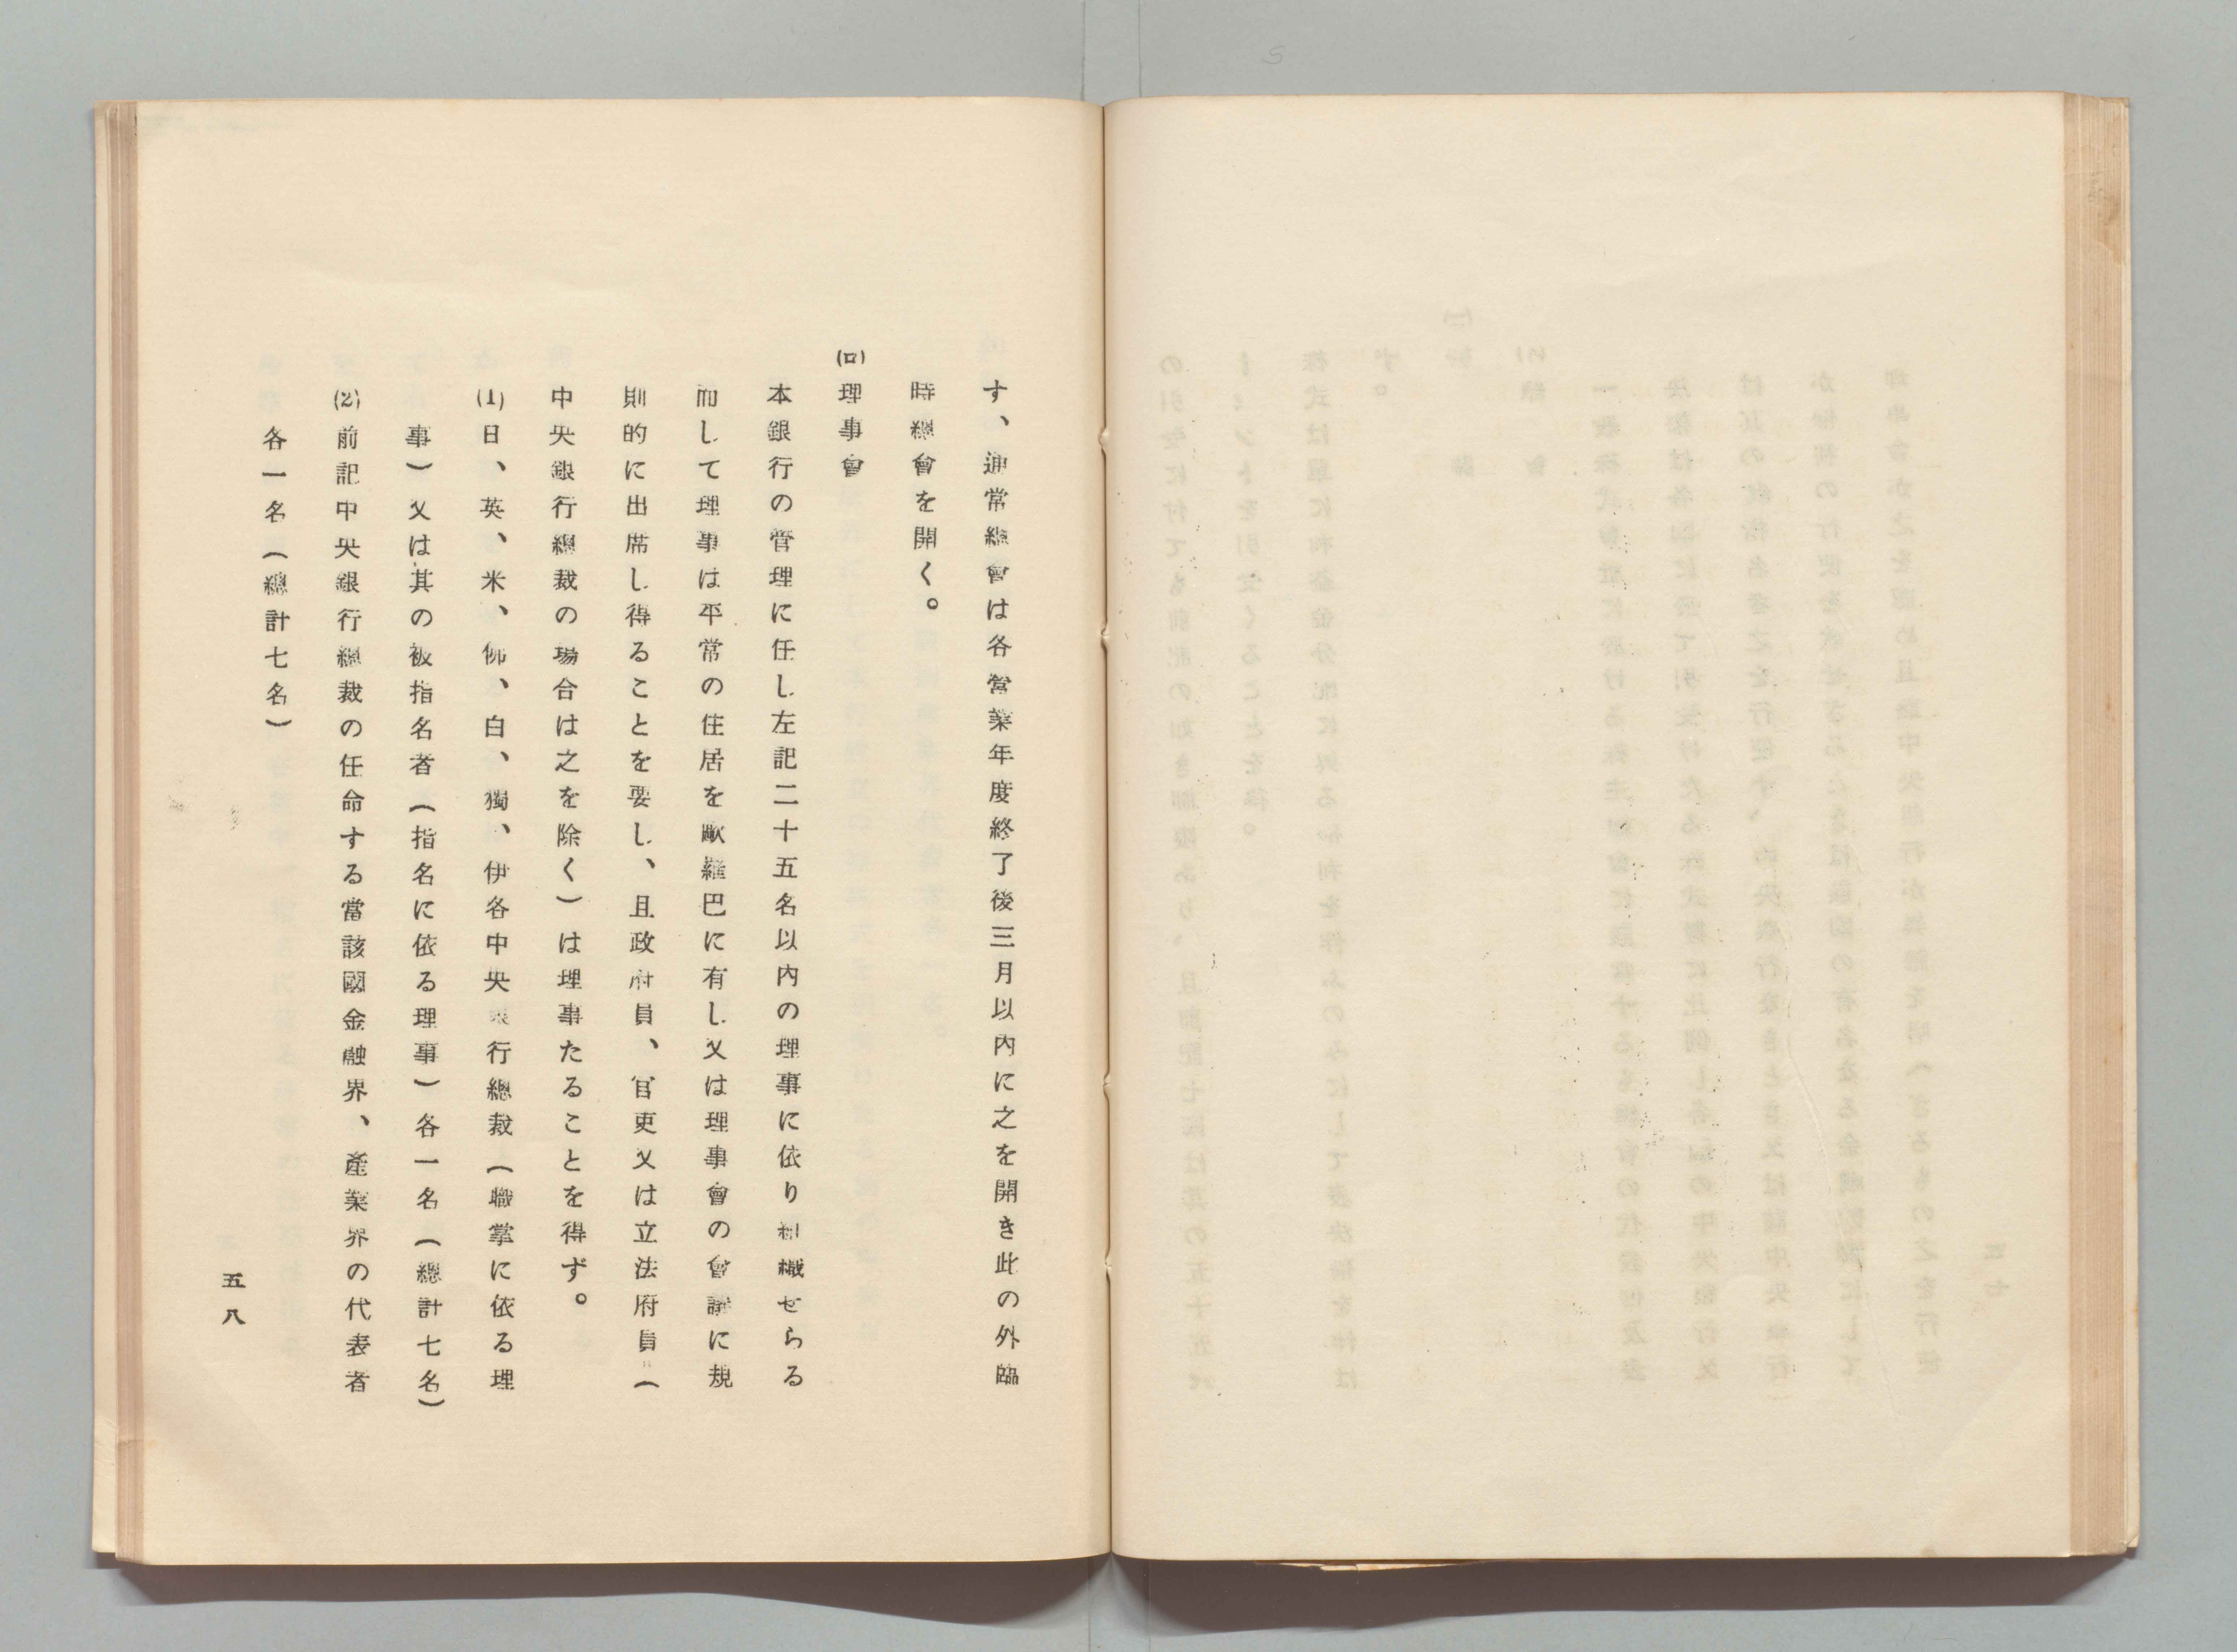 す、通常總會は各營業年度終了後三月以內に之を開き此の外臨
時總會を開く。
(ロ)理事會
本銀行の管理に任し左記二十五名以內の理事に依り組織せらる
而して理事は平常の住居を歐羅巴に有し又は理事會の會議に規
則的に出席し得ることを要し、且政府員、官吏又は立法府員(
中央銀行總裁の場合は之を除く)は理事たることを得ず。
(1)日、英、米、佛、白、獨、伊各中央銀行總裁(職掌に依る理
事)又は其の被指名者(指名に依る理事)各一名(總計七名)
(2)前記中央銀行總裁の任命する當該國金融界、產業界の代表者
各一名(總計七名)
五八